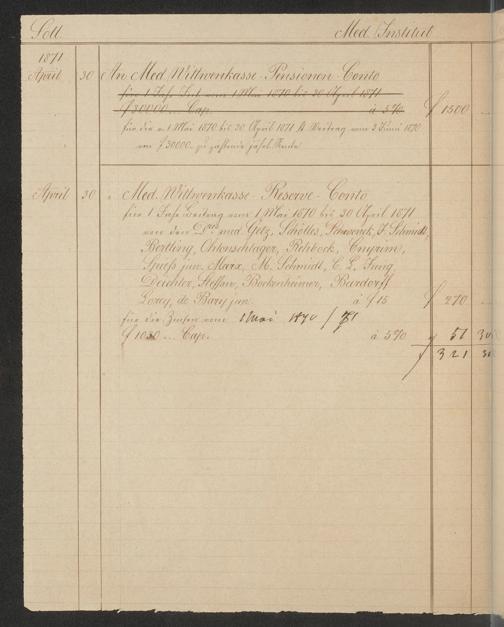 Soll Med. Institut
1871
April 30 An Med. Wittwenkasse-Pensionen-Conto
für 1 Jahr Zins vom 1 Mai 1870 bis 30 April 1871
f 30000 .. Cap. à 5% f 1500 ..
für die v. 1 Mai 1870 bis 30 April 1871 lt. Vertrag vom 2 Juni 1870
von f 30000. zu zahlende jährl. Rente
April 30 " Med. Wittwenkasse-Reserve-Conto
für 1 Jahr Beitrag vom 1 Mai 1870 bis 30 April 1871
von den Dres med. Getz, Schölles, Schwenck, F. Schmidt,
Bertling, Ohlenschlager, Rehbock, Cnyrim,
Spiess jun., Marx, M. Schmidt, C. L. Jung,
Deichler, Steffan, Bockenheimer, Bardorff
Lorey, de Bary jun. à f 15 f 270 ..
für die Zinsen vom 1 Mai 1870 / 71
f 1030 .. Cap. à 5% " 51 30
f 321 30